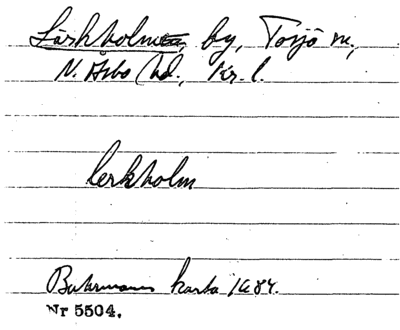 Lärkholmen, by, Torjö sn,
N. Åsbo hd., Kr. l.
Lerkholm
Buhrmans karta 1684.
Nr 5504.